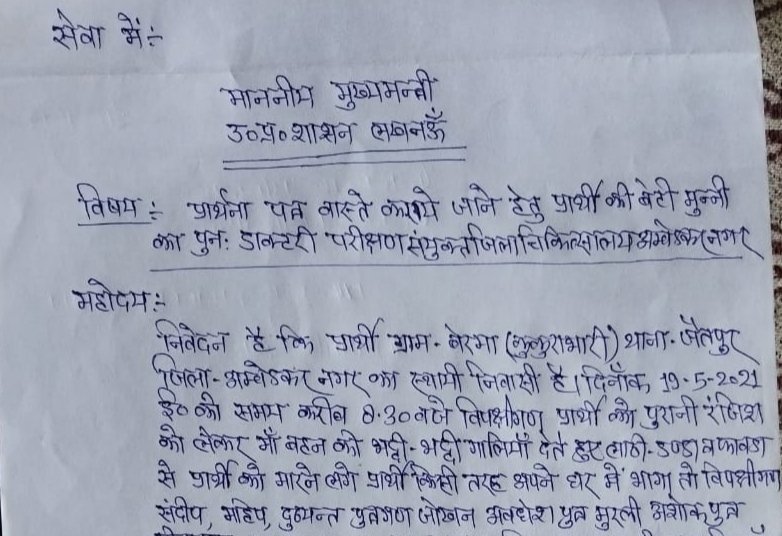 सेवा में :-
माननीय मुख्यमन्त्री
उ०प्र० शाशन लखनऊ
विषय :- प्रार्थना पत्र वास्ते कराये जाने हेतु प्रार्थी की बेटी मुन्नी
का पुनः डाक्टरी परीक्षण संयुक्त जिला चिकित्सालय अम्बेडकर नगर
महोदय :-
निवेदन है कि प्रार्थी ग्राम - बेरमा थाना - जैतपुर
जिला - अम्बेडकर नगर का स्थायी निवासी है। दिनाँक 19-5-2021
ई० को समय करीब 8.30 बजे विपक्षीगण प्रार्थी को पुरानी रंजिश
को लेकर माँ बहन की भद्दी-भद्दी गालियाँ देते हुए लाठी-डण्डा व फावडा
से प्रार्थी को मारने लगे प्रार्थी किसी तरह अपने घर में भागा तो विपक्षीगण
संदीप, महिप, दुष्यन्त पुत्रगण जोखन अवधेश पुत्र मुरली अशोक पुत्र